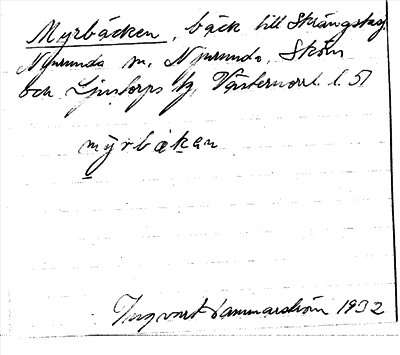 Myrbäcken, bäck till Skrängstag.
Njurunda sn, Njurunda, Sköns
och Ljustorps tg, Västernorrl. l. 51
myrbäkan
Ingvart Hammarström 1932